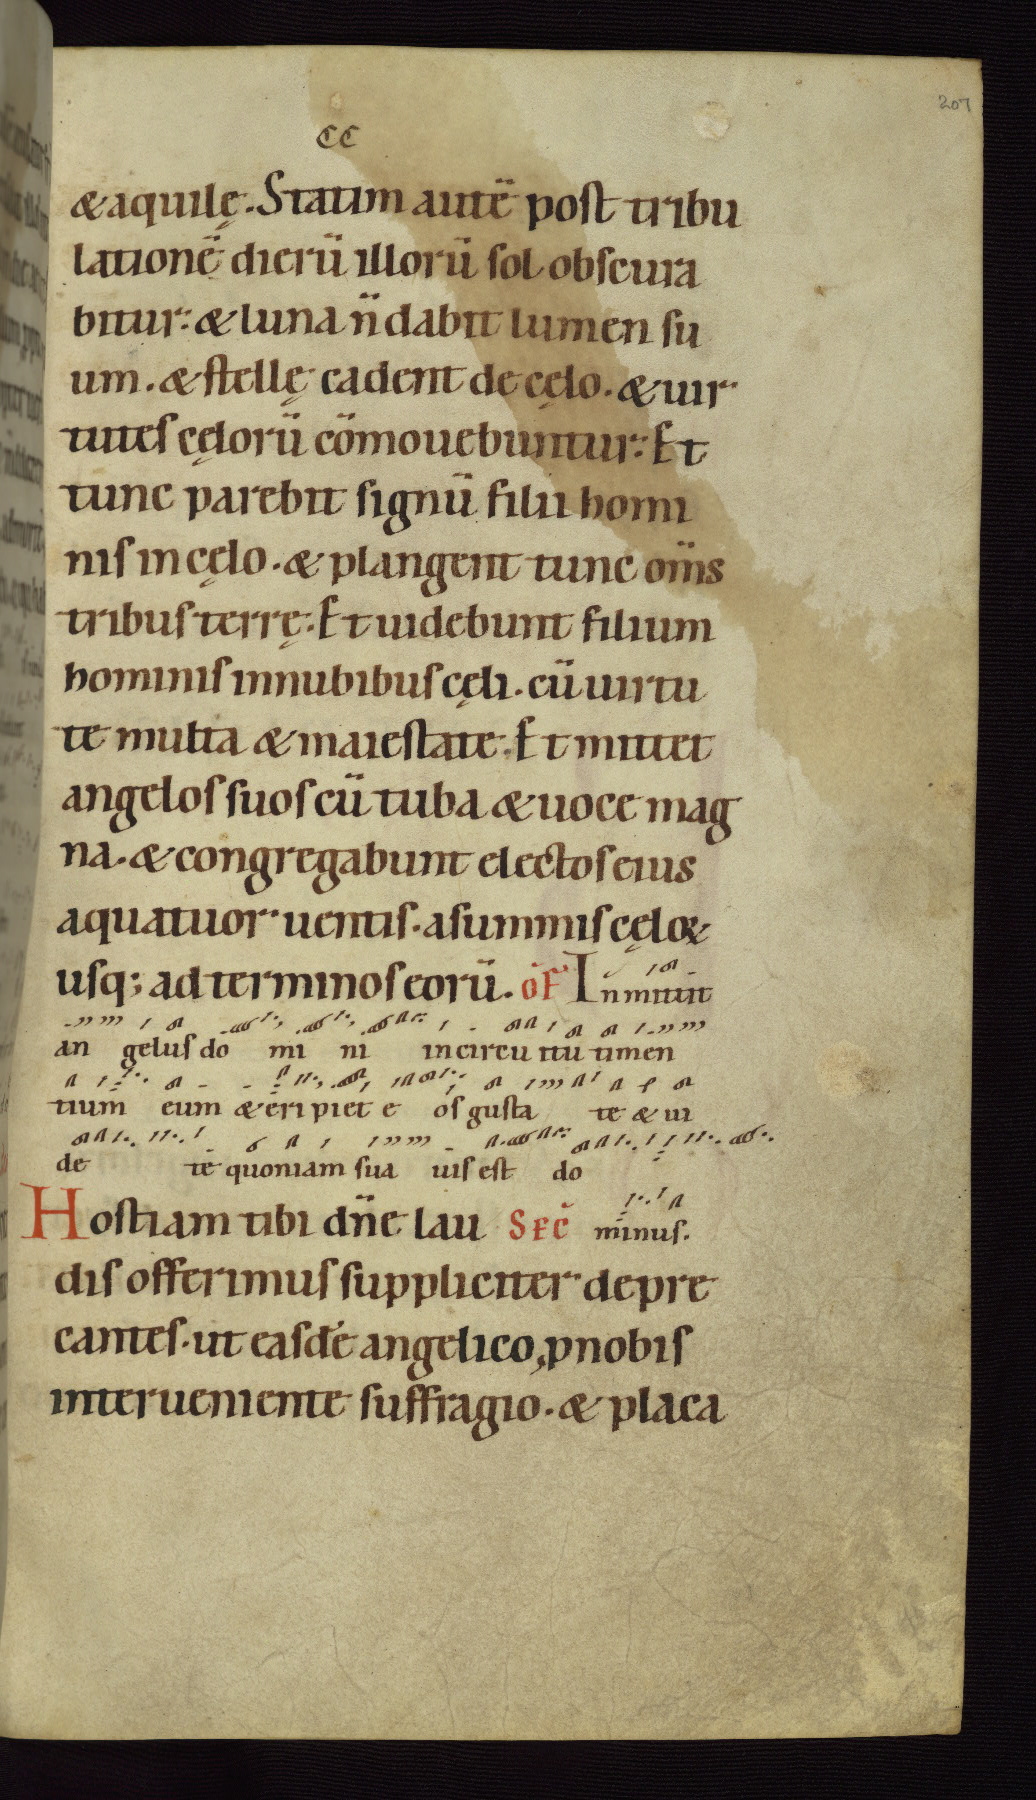 207
CC
& aquilę. Statim autē post tribu
lationē dierū illorū sol obscura
bitur: & luna n̄ dabit lumen su
um. & stellę cadent de cęlo. & uir
tutes cęlorū cōmouebuntur: Et
tunc parebit signū filii homi
nis in cęlo. & plangent tunc om̄s
tribus terrę: Et uidebunt filium
hominis in nubibus cęli. cū uirtu
te multa & maiestate: Et mittet
angelos suos cū tuba & uoce mag
na. & congregabunt electos eius
a quatuor uentis. a summis cęloꝝ
usq; ad terminos eorū. oF Inmittit
an gelus do mi ni in circu itū timen
tium eum & eripiet e os gusta te & ui
de te quoniam sua uis est do
Hostiam tibi dn̄e lau SEC̄ minus.
dis offerimus suppliciter depre
cantes. ut easdē angelico, p nobis
interueniente suffragio. & placa